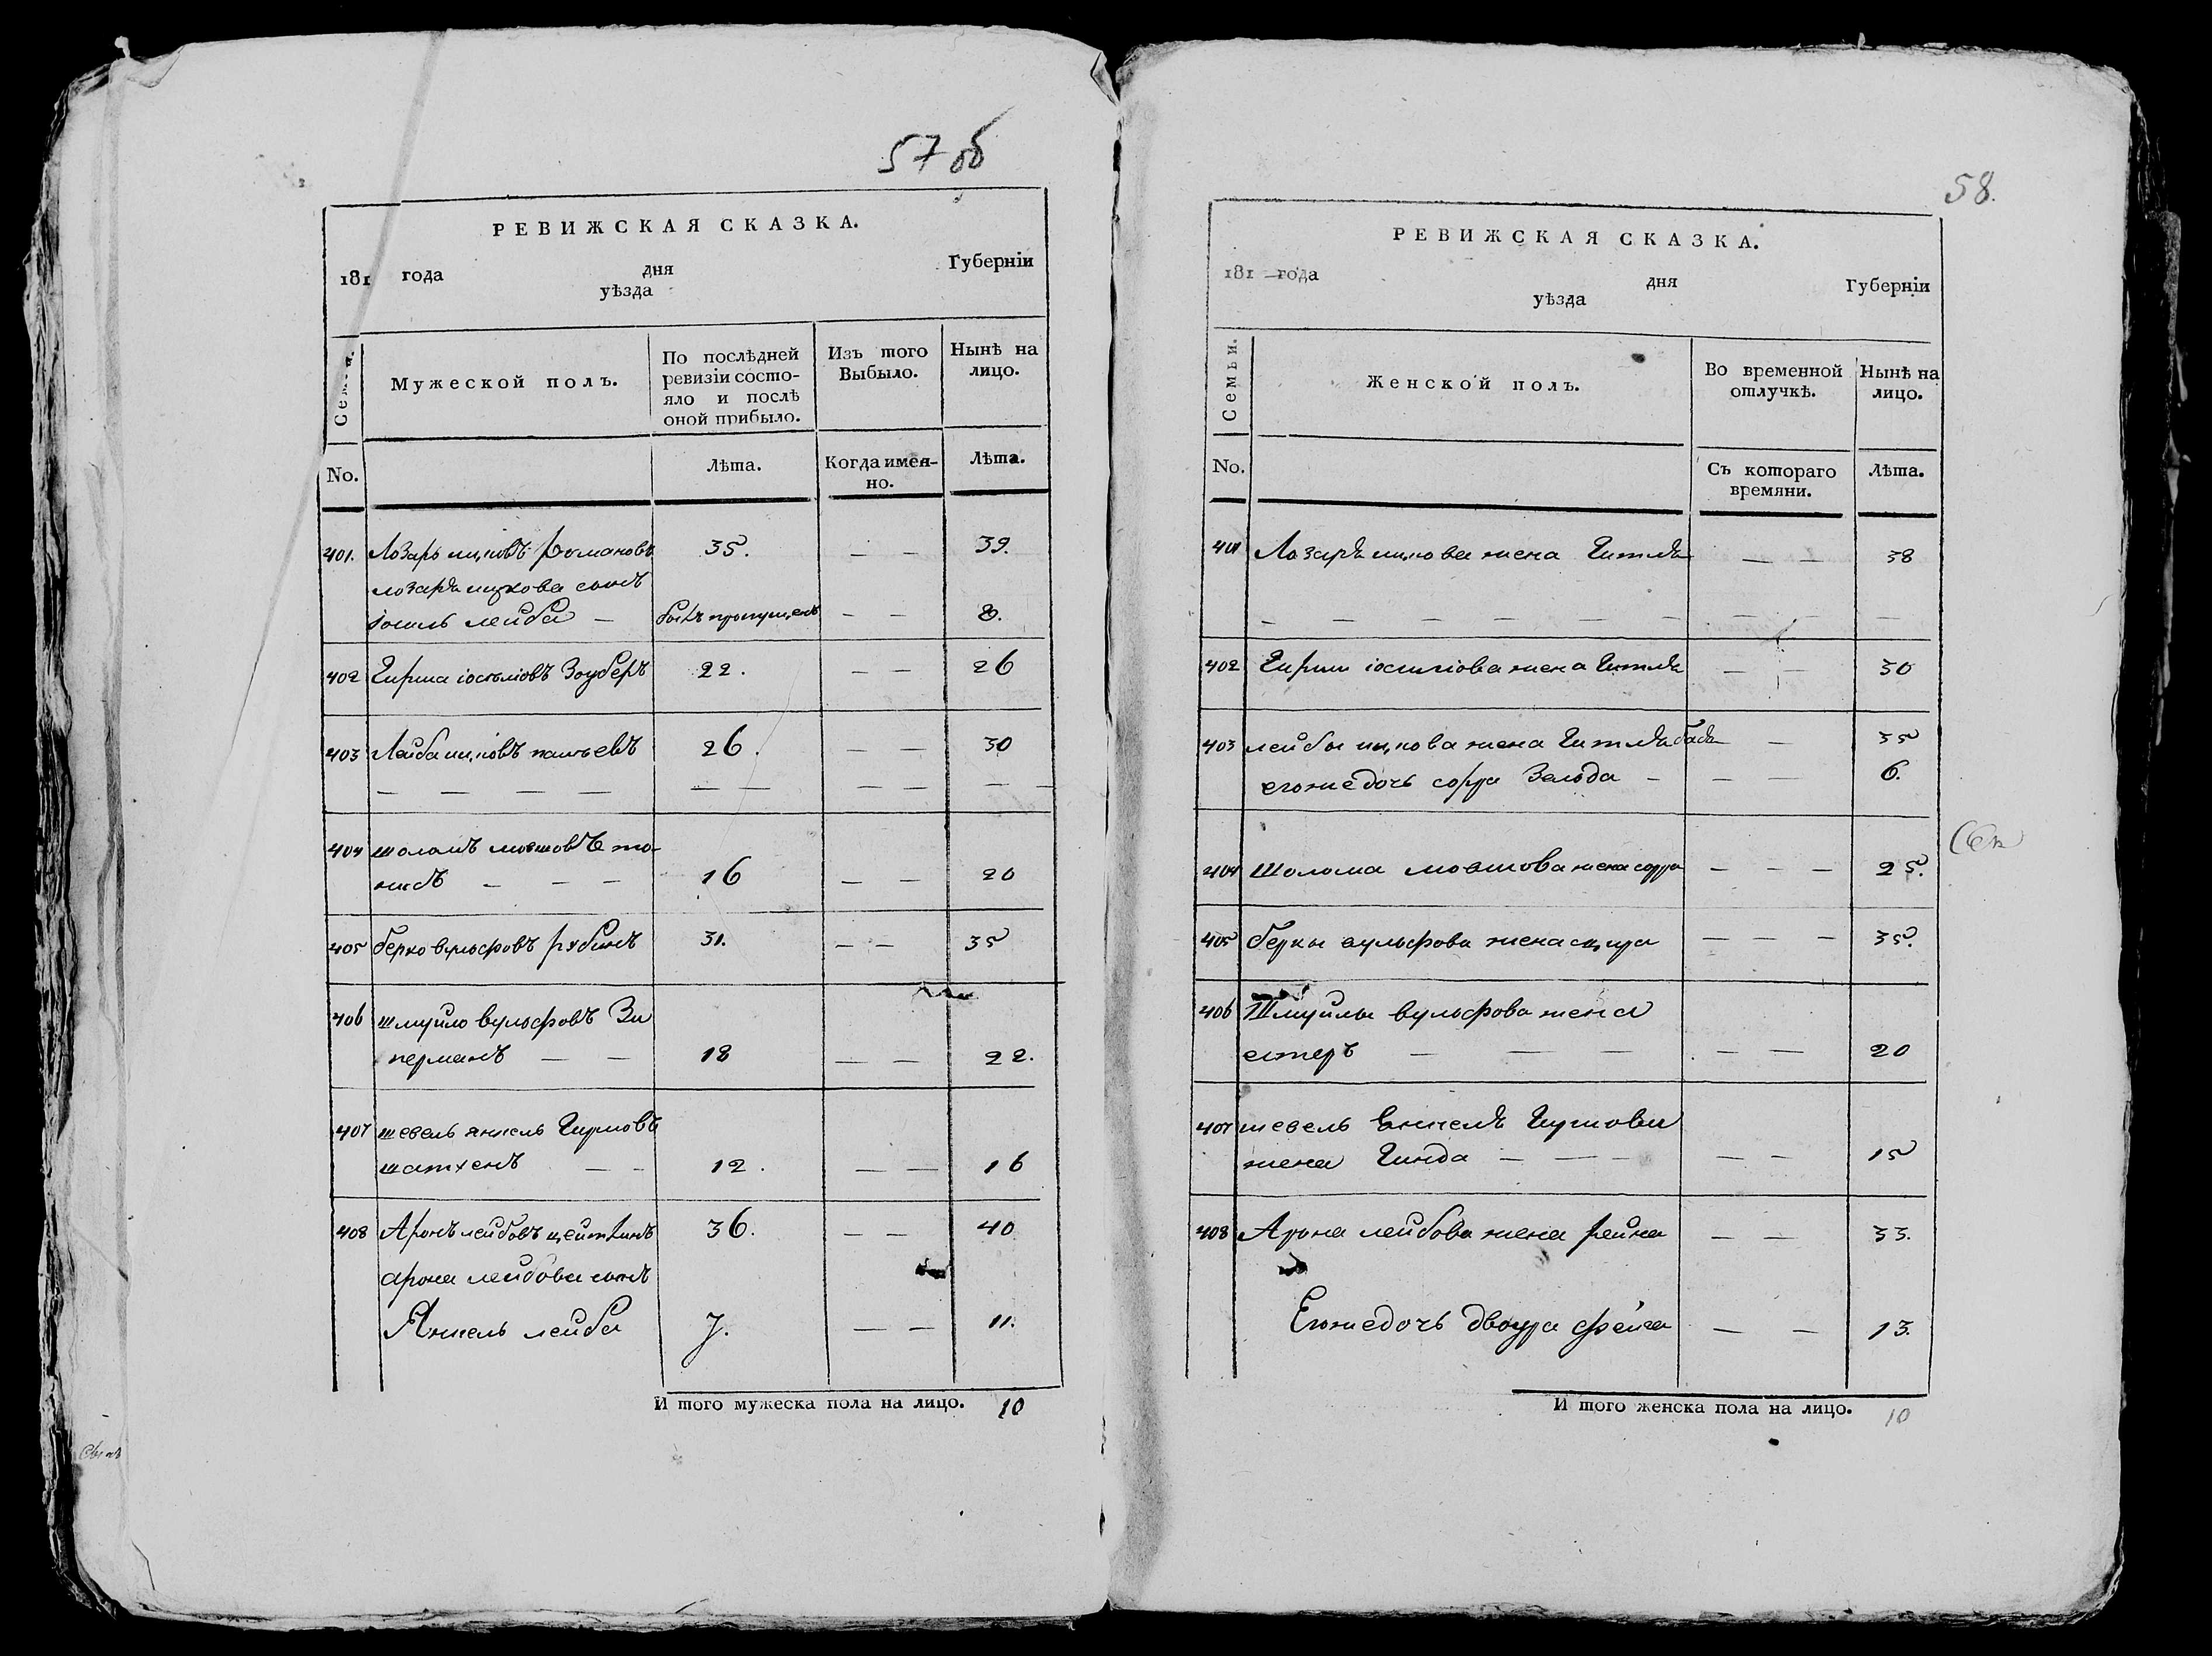 57 об
РЕВИЖСКАЯ СКАЗКА.
181 года дня Губерніи
уѣзда
Семьи.
Мужеской полъ.
По послѣдней ревизіи состо-
яло и послѣ оной прибыло.
Изъ того Выбыло.
Нынѣ на лицо.
No.
Лѣта.
Когда имен-
но.
Лѣта.
401. Лозарь ицковъ Романовъ 35. — — 39.
лозаря ицкова сынъ
лейба — былъ пропущенъ — — 8.
402 Гирша іоселіовъ Зоуберъ 22. — — 26
403 Лейба ицковъ 26. — — 30
— — — — — — — — — —
404 шоломъ мовшовъ
— — — 16 — — 20
405 берко вульфовъ рубинъ 31. — — 35
406 шмуйло вульфовъ Зи
перманъ — — 18 — — 22.
407 шевель янкель Гиршовъ
шатхенъ — — 12. — — 16
408 Аронъ лейбовъ цейтлинъ 36. — — 40
арона лейбова сынъ
Янкель лейба 7. — — 11.
И того мужеска пола на лицо. 10
58.
РЕВИЖСКАЯ СКАЗКА.
181 года дня Губерніи
уѣзда
Семьи.
Женской полъ.
Во временной отлучкѣ.
Нынѣ на лицо.
No.
Съ котораго времяни.
Лѣта.
401 Лозаря ицкова жена Гитля — — 38
— — — — — — — — —
402 Гирши іоселіова жена Гитля — — 30
403 лейбы ицкова жена Гитля бася — — 35
егожедочь сорра Зельда — — — 6.
404 Шолома мовшова жена сорра — — — 25.
405 берки вульфова жена — — — 35.
406 Шмуйлы вульфова жена
естеръ — — — — — 20
407 шевель Янкеля Гиршова
жена Гинда — — — — — 15
408 Арона лейбова жена рейна — — 33.
Егожедочь двоура фейга — — 13.
И того женска пола на лицо. 10